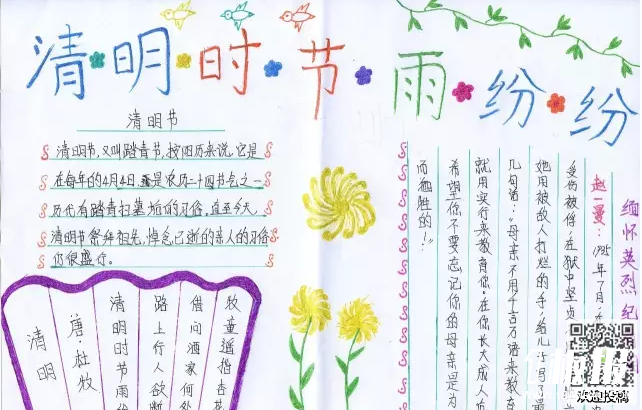 清明时节雨纷纷
清明节
清明节,又叫踏青节,按阳历来说,它是
在每年的4月4日,是农历二十四节气之一
历代有踏青扫墓的习俗,直至今天,
清明节祭拜祖先,悼念已逝的亲人的习俗
仍很盛行。
清明
唐杜牧
清明时节雨
路上行人欲断
借问酒家何处
牧童遥指杏花
缅怀英烈纪
赵一曼:1935年7月,在
受伤被俘,在狱中坚贞
她用被敌人打烂的手,给儿子写了最
几句话:"母亲不用千言万语来教
就用实行来教育你。在你长大成人
希望你不要忘记你的母亲是为
而牺牲的!"
欢迎投稿